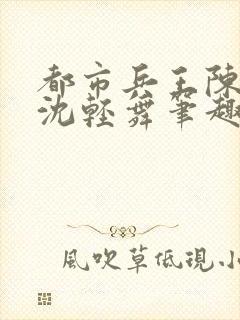 都市兵王陳
沈輕舞筆趣
風吹草低現小